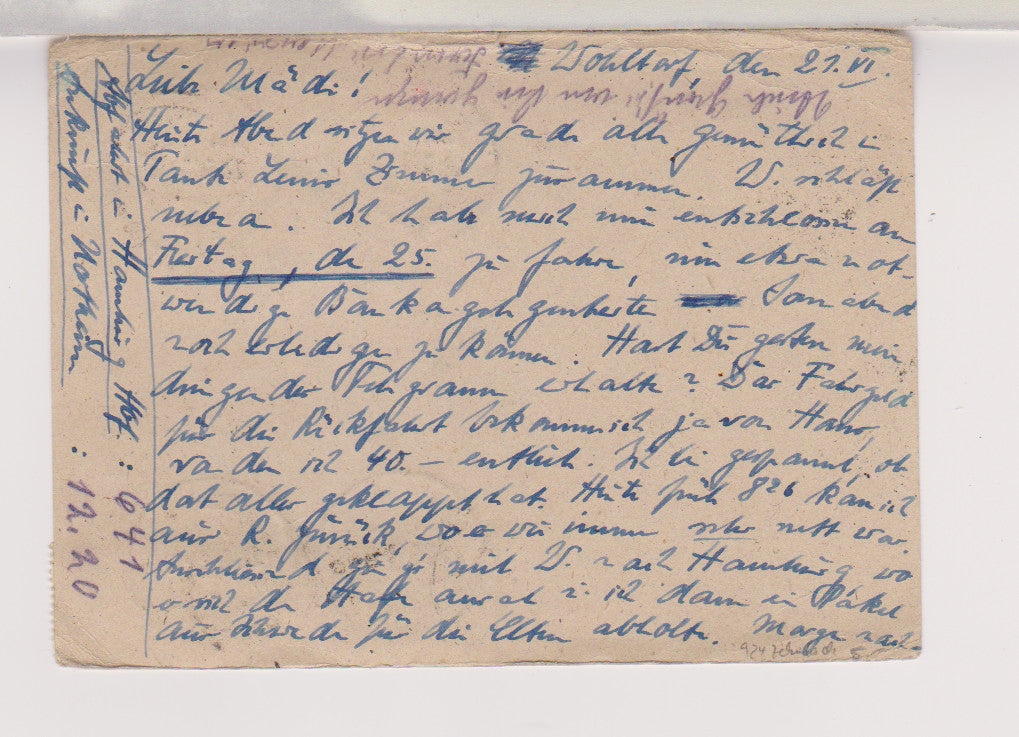 Wohltorf, den 21. VI.
Liebe Mädi!
Heute Abend sitzen wir grade alle gemütlich in
Tante Zimmer zusammen. W. schläft
nebenan. Ich habe mich nun entschlossen am
Freitag, den 25. zu fahren, um etwa not-
wendige Bankangelegenheiten Sonnabend
noch erledigen zu können. Hast Du gestern mein
dringendes Telegramm erhalten? Das Fahrgeld
für die Rückfahrt bekomme ich ja von Hans,
von dem ich 40.– entlieh. Ich bin gespannt, ob
das alles geklappt hat. Heute früh 8²⁶ kam ich
aus R. zurück, wo es wie immer sehr nett war.
Anschliessend ging's mit W. nach Hamburg, wo
er sich den Hafen ansah u. ich dann ein Paket
aus Schweden für die Eltern abholte. Morgen nach-
Abfahrt in Hamburg Hbf. : 6 41
Ankunft in Northeim : 12.20